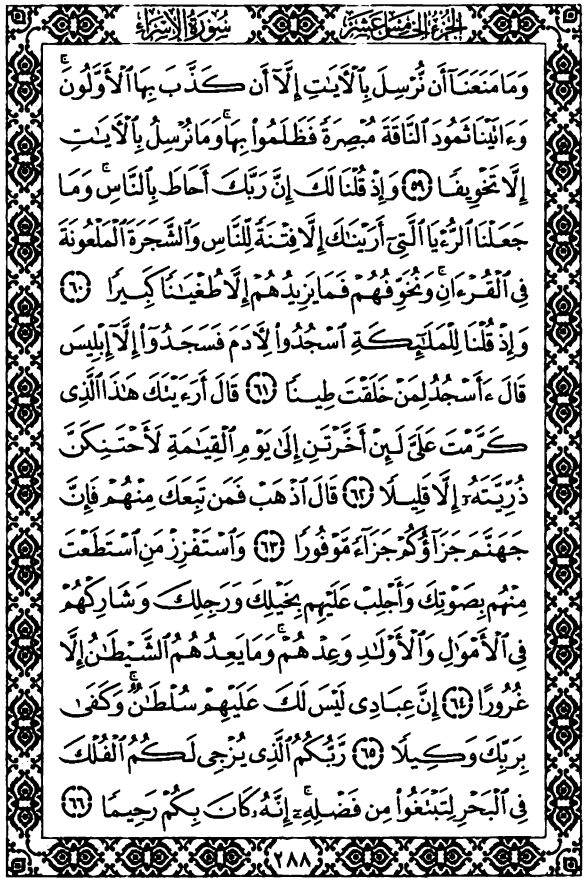 سُورَةُ الإِسْرَاءِ
الجُزْءُ الخَامِسَ عَشَرَ
وَمَا مَنَعَنَآ أَن نُّرْسِلَ بِٱلْأَيَٰتِ إِلَّآ أَن كَذَّبَ بِهَا ٱلْأَوَّلُونَۚ
وَءَاتَيْنَا ثَمُودَ ٱلنَّاقَةَ مُبْصِرَةً فَظَلَمُوا۟ بِهَاۚ وَمَا نُرْسِلُ بِٱلْأَيَٰتِ
إِلَّا تَخْوِيفًا ﴿٥٩﴾ وَإِذْ قُلْنَا لَكَ إِنَّ رَبَّكَ أَحَاطَ بِٱلنَّاسِۚ وَمَا
جَعَلْنَا ٱلرُّءْيَا ٱلَّتِىٓ أَرَيْنَٰكَ إِلَّا فِتْنَةً لِّلنَّاسِ وَٱلشَّجَرَةَ ٱلْمَلْعُونَةَ
فِى ٱلْقُرْءَانِۚ وَنُخَوِّفُهُمْ فَمَا يَزِيدُهُمْ إِلَّا طُغْيَٰنًا كَبِيرًا ﴿٦٠﴾
وَإِذْ قُلْنَا لِلْمَلَٰٓئِكَةِ ٱسْجُدُوا۟ لِأَدَمَ فَسَجَدُوٓا۟ إِلَّآ إِبْلِيسَ
قَالَ ءَأَسْجُدُ لِمَنْ خَلَقْتَ طِينًا ﴿٦١﴾ قَالَ أَرَءَيْتَكَ هَٰذَا ٱلَّذِى
كَرَّمْتَ عَلَىَّ لَئِنْ أَخَّرْتَنِ إِلَىٰ يَوْمِ ٱلْقِيَٰمَةِ لَأَحْتَنِكَنَّ
ذُرِّيَّتَهُۥٓ إِلَّا قَلِيلًا ﴿٦٢﴾ قَالَ ٱذْهَبْ فَمَن تَبِعَكَ مِنْهُمْ فَإِنَّ
جَهَنَّمَ جَزَآؤُكُمْ جَزَآءً مَّوْفُورًا ﴿٦٣﴾ وَٱسْتَفْزِزْ مَنِ ٱسْتَطَعْتَ
مِنْهُم بِصَوْتِكَ وَأَجْلِبْ عَلَيْهِم بِخَيْلِكَ وَرَجِلِكَ وَشَارِكْهُمْ
فِى ٱلْأَمْوَٰلِ وَٱلْأَوْلَٰدِ وَعِدْهُمْۚ وَمَا يَعِدُهُمُ ٱلشَّيْطَٰنُ إِلَّا
غُرُورًا ﴿٦٤﴾ إِنَّ عِبَادِى لَيْسَ لَكَ عَلَيْهِمْ سُلْطَٰنٌۚ وَكَفَىٰ
بِرَبِّكَ وَكِيلًا ﴿٦٥﴾ رَّبُّكُمُ ٱلَّذِى يُزْجِى لَكُمُ ٱلْفُلْكَ
فِى ٱلْبَحْرِ لِتَبْتَغُوا۟ مِن فَضْلِهِۦٓۚ إِنَّهُۥ كَانَ بِكُمْ رَحِيمًا ﴿٦٦﴾
٢٨٨